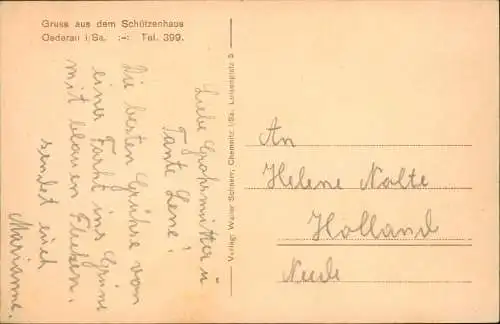 Gruss aus dem Schützenhaus
Oederan i/Sa. :-: Tel. 399.
Liebe Großmutter u
Tante Lene!
Die besten Grühse von
einer Farht ins Grüne
mit blauen Flecken.
sendet euch
Marianne.
Verlag: Walter Schneer, Chemnitz i/Sa. Luisenplatz 5
An
Helene Nolte
Holland